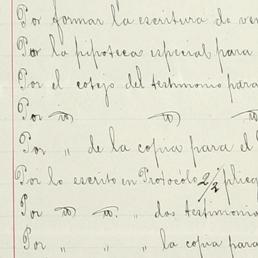 Por formar la escritura de ven
Por la hipoteca especial para
Por el cotejo del testimonio para
Por id id id
Por " de la copia para el
Por lo escrito en Protocolo 2/2 pliego
Por id id. " dos testimonio
Por " " " la copia para